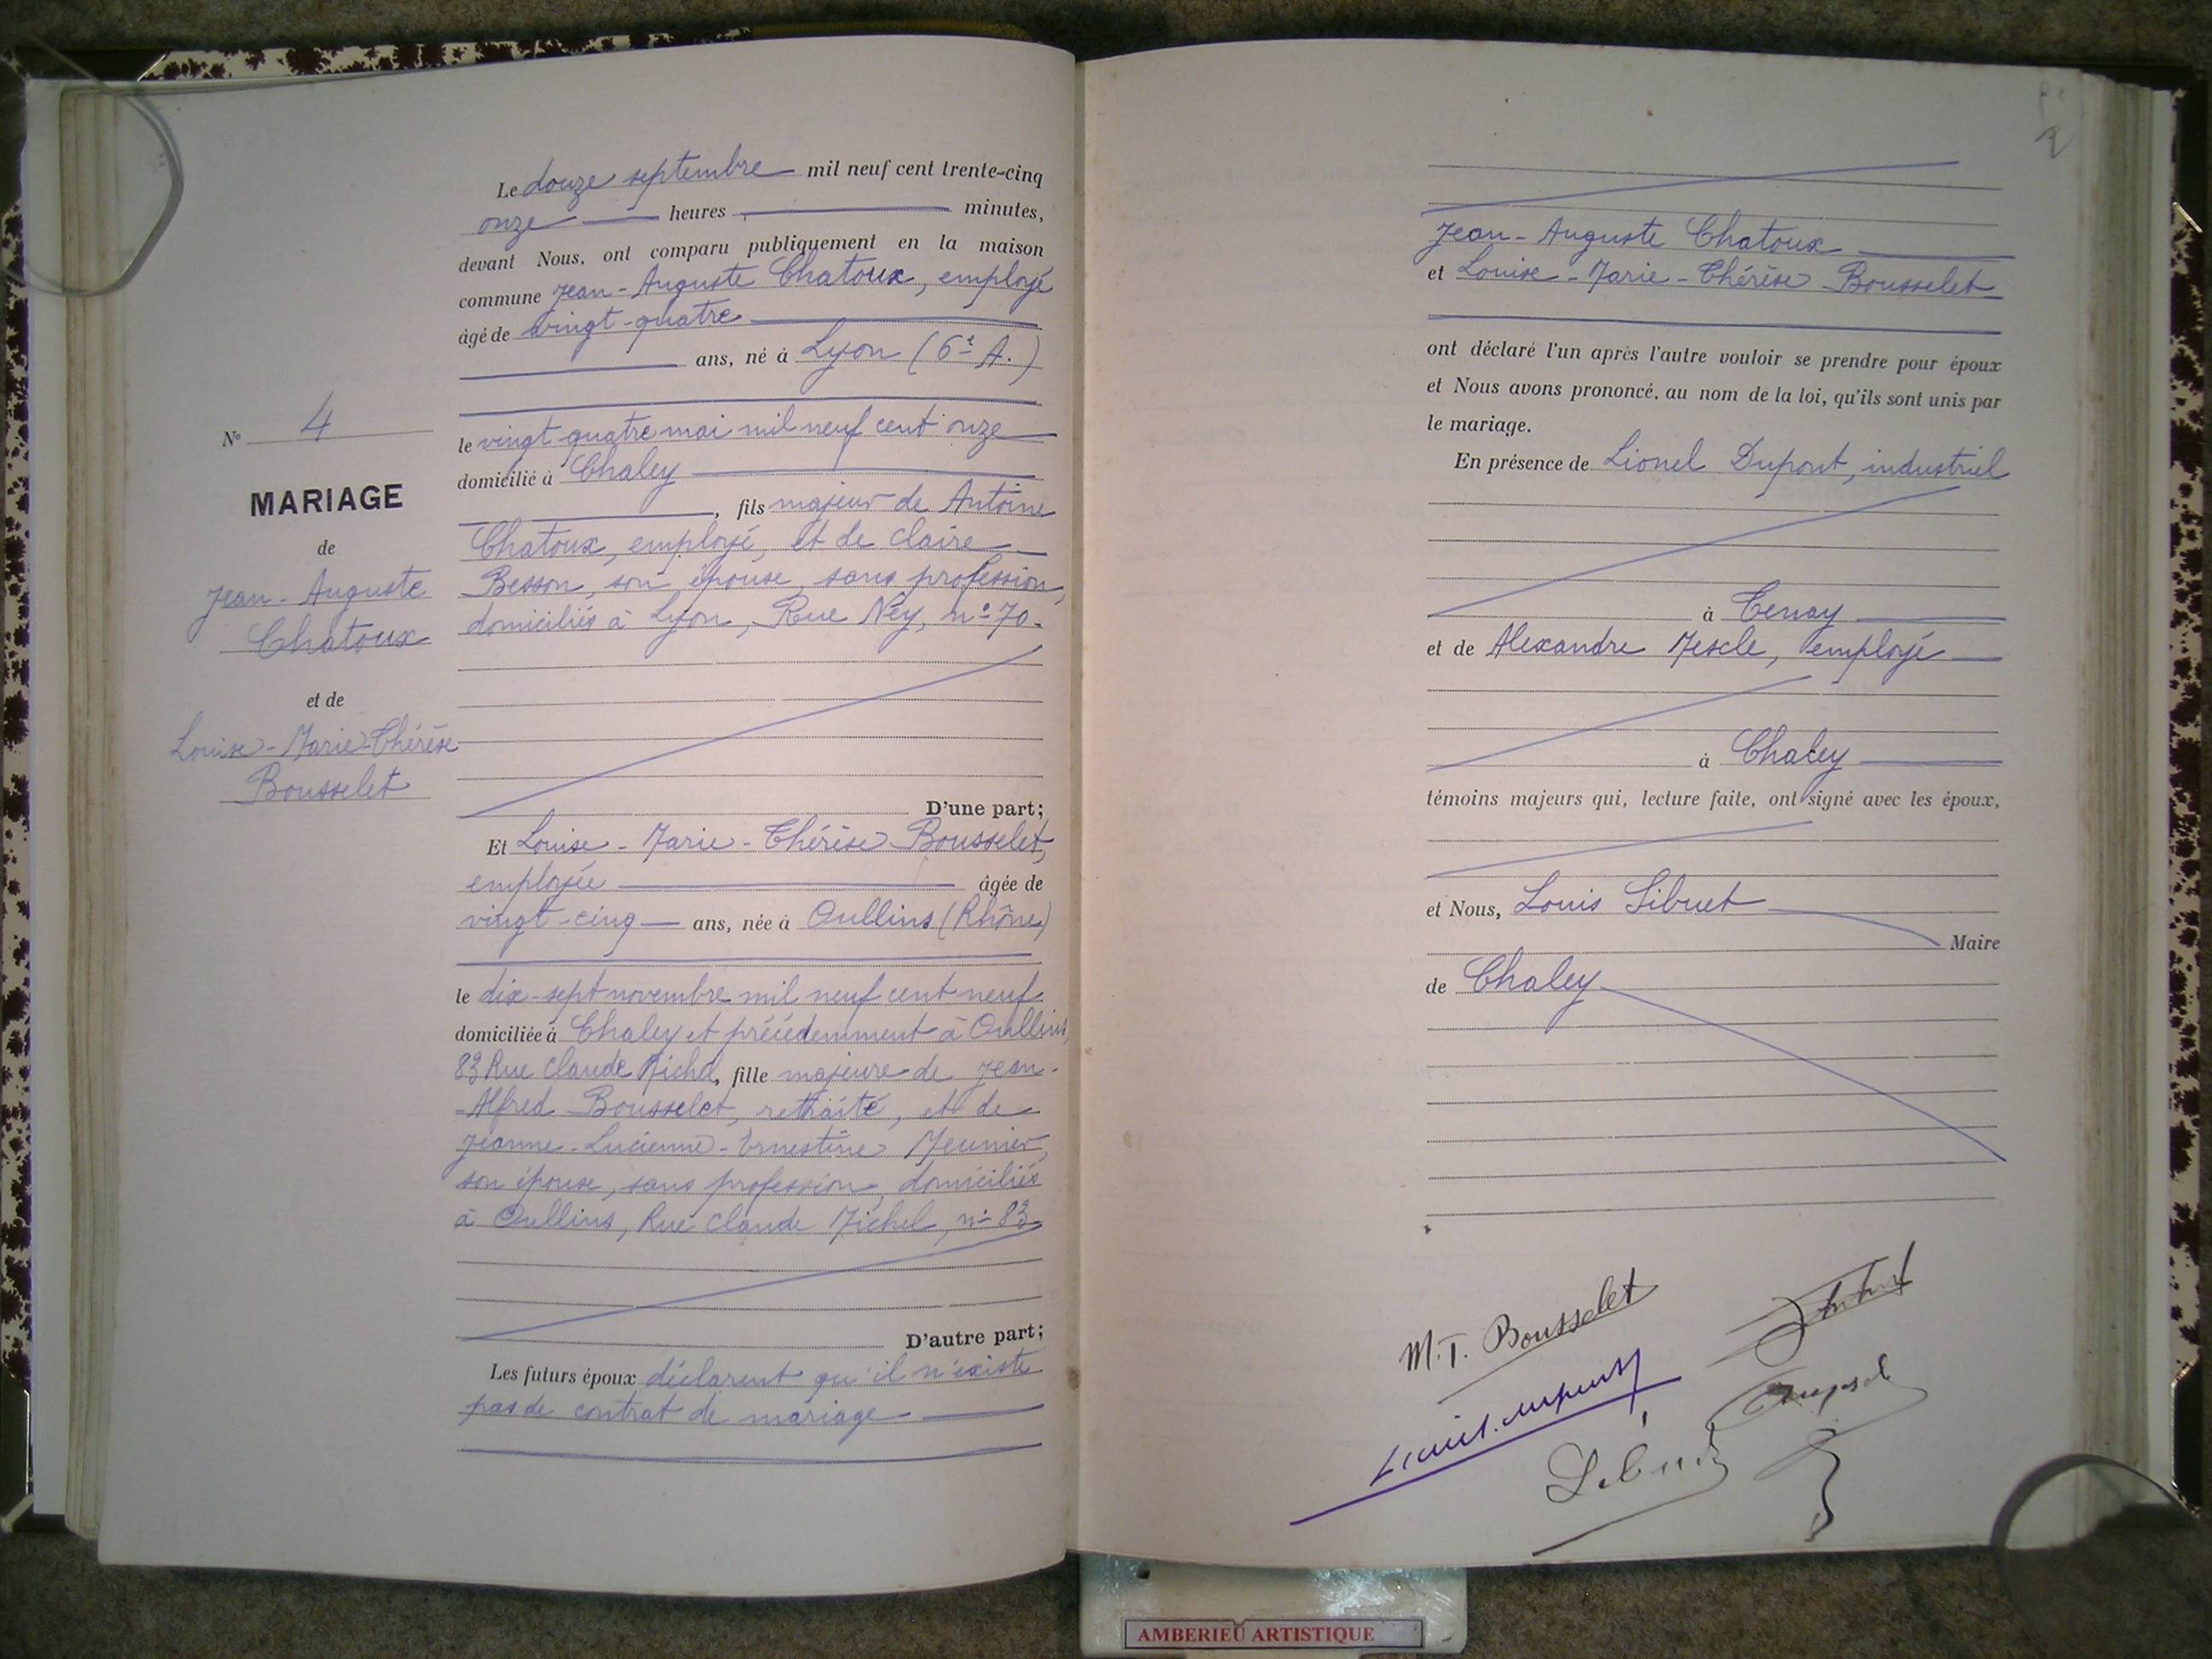 Le douze septembre mil neuf cent trente-cinq
onze heures minutes,
devant Nous, ont comparu publiquement en la maison
commune Jean-Auguste Chatoux, employé
âgé de vingt-quatre
ans, né à Lyon (6e A.)
le vingt-quatre mai mil neuf cent onze
domicilié à Chaley
, fils majeur de Antoine
Chatoux, employé, et de Claire
Besson, son épouse, sans profession,
domiciliés à Lyon, Rue Ney, no 70.
D'une part;
Et Louise-Marie-Thérèse Bousselet,
employée âgée de
vingt-cinq ans, née à Oullins (Rhône)
le dix-sept novembre mil neuf cent neuf
domiciliée à Chaley et précédemment à Oullins,
83 Rue Claude, fille majeure de Jean-
Alfred Bousselet, retraité, et de
Jeanne-Lucienne-Ernestine Meunier,
son épouse, sans profession, domiciliés
à Oullins, Rue Claude Michel, no 83
D'autre part;
Les futurs époux déclarent qu'il n'existe
pas de contrat de mariage
No 4
MARIAGE
de
Jean-Auguste
Chatoux
et de
Louise-Marie-Thérèse
Bousselet
Jean-Auguste Chatoux
et Louise-Marie-Thérèse Bousselet
ont déclaré l'un après l'autre vouloir se prendre pour époux
et Nous avons prononcé, au nom de la loi, qu'ils sont unis par
le mariage.
En présence de Lionel Dupont, industriel
à Tenay
et de Alexandre Mescle, employé
à Chaley
témoins majeurs qui, lecture faite, ont signé avec les époux,
et Nous, Louis Sibuet
Maire
de Chaley
M.T. Bousselet
Sibuet
AMBERIEU ARTISTIQUE